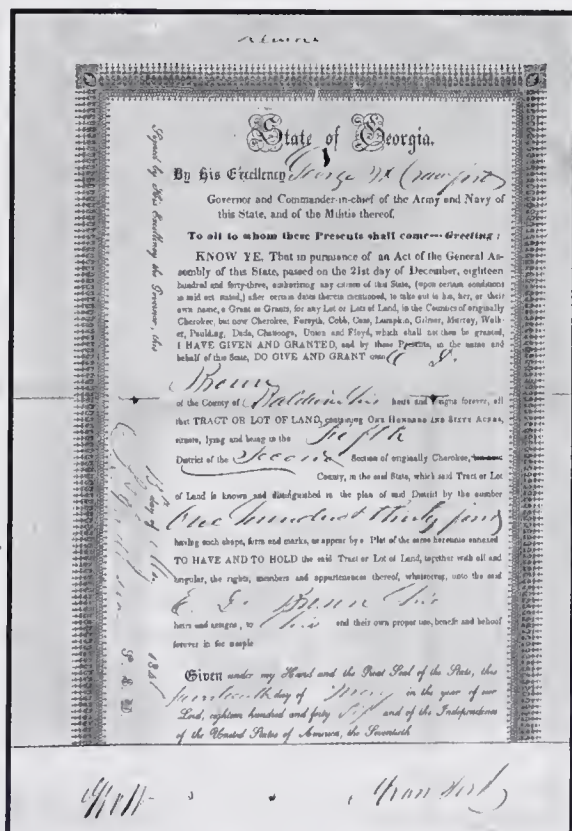 State of Georgia.
By His Excellency George W Crawford
Governor and Commander-in-chief of the Army and Navy of
this State, and of the Militia thereof.
To all to whom these Presents shall come--Greeting:
KNOW YE, That in pursuance of an Act of the General As-
sembly of this State, passed on the 21st day of December, eighteen
hundred and forty-three, authorizing any citizen of this State, (upon certain conditions
in said act stated,) after certain dates therein mentioned, to take out in his, her, or their
own name, a Grant or Grants, for any Lot or Lots of Land, in the Counties of originally
Cherokee, but now Cherokee, Forsyth, Cobb, Cass, Lumpkin, Gilmer, Murray, Walk-
er, Paulding, Dade, Chattooga, Union and Floyd, which shall not then be granted,
I HAVE GIVEN AND GRANTED, and by these Presents, in the name and
behalf of this State, DO GIVE AND GRANT unto
of the County of Baldwin his heirs and assigns forever, all
that TRACT OR LOT OF LAND, containing ONE HUNDRED AND SIXTY ACRES,
situate, lying and being in the Fifth
District of the Second Section of originally Cherokee,
County, in the said State, which said Tract or Lot
of Land is known and distinguished in the plan of said District by the number
One hundred thirty four
having such shape, form and marks, as appear by a Plat of the same hereunto annexed
TO HAVE AND TO HOLD the said Tract or Lot of Land, together with all and
singular, the rights, members and appurtenances thereof, whatsoever, unto the said
his
heirs and assigns, to his and their own proper use, benefit and behoof
forever in fee simple
Given under my Hand and the Great Seal of the State, this
day of May in the year of our
Lord, eighteen hundred and forty and of the Independence
of the United States of America, the Seventieth
Signed by His Excellency the Governor, this
15th day of May 1845
S. E. D.